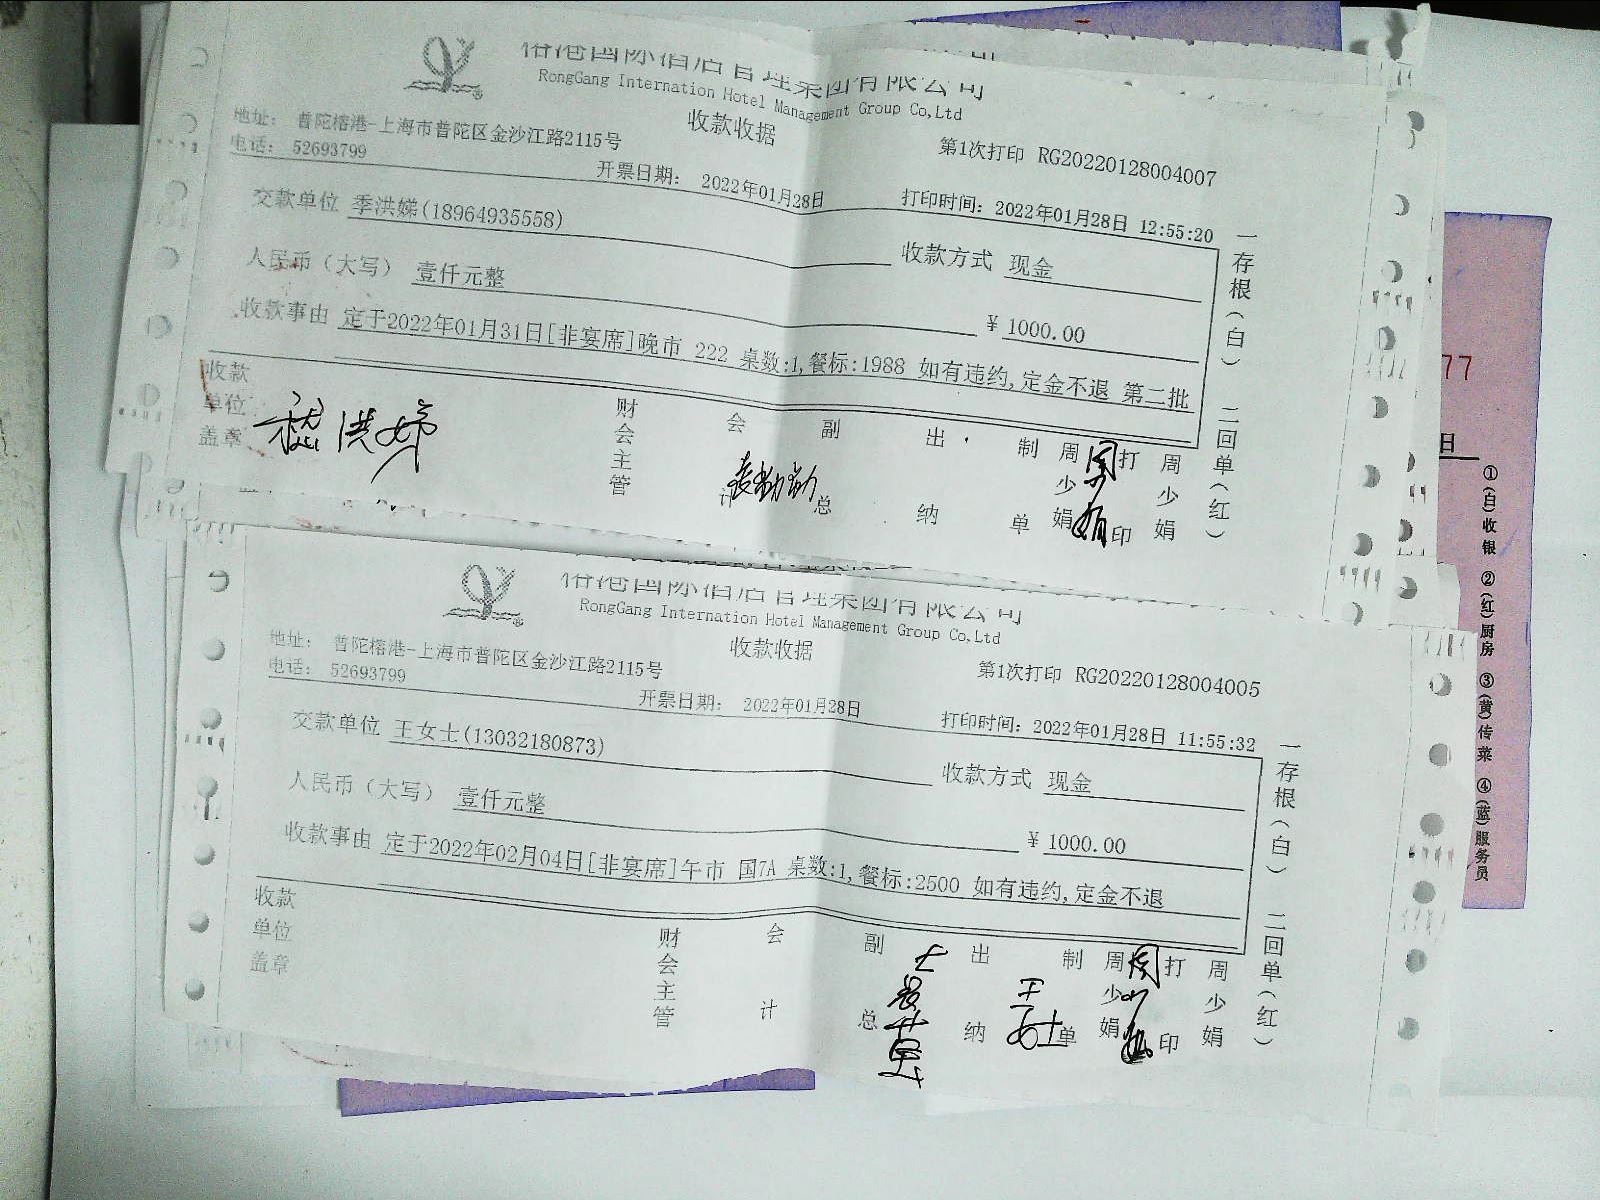 榕港国际酒店管理集团有限公司
RongGang Internation Hotel Management Group Co,Ltd
收款收据
地址: 普陀榕港-上海市普陀区金沙江路2115号
电话: 52693799
第1次打印 RG20220128004007
开票日期: 2022年01月28日
打印时间: 2022年01月28日 12:55:20
交款单位 季洪娣(18964935558)
收款方式 现金
人民币（大写） 壹仟元整
¥ 1000.00
收款事由 定于2022年01月31日[非宴席]晚市 222 桌数:1,餐标:1988 如有违约,定金不退 第二批
收款单位盖章
财会主管
会计
副总
出纳
制单
周少娟
打印
周少娟
一存根(白) 二回单(红)
榕港国际酒店管理集团有限公司
RongGang Internation Hotel Management Group Co,Ltd
收款收据
地址: 普陀榕港-上海市普陀区金沙江路2115号
电话: 52693799
第1次打印 RG20220128004005
开票日期: 2022年01月28日
打印时间: 2022年01月28日 11:55:32
交款单位 王女士(13032180873)
收款方式 现金
人民币（大写） 壹仟元整
¥ 1000.00
收款事由 定于2022年02月04日[非宴席]午市 国7A 桌数:1,餐标:2500 如有违约,定金不退
收款单位盖章
财会主管
会计
副总
出纳
王女士
制单
周少娟
打印
周少娟
一存根(白) 二回单(红)
77
日
①(白)收银 ②(红)厨房 ③(黄)传菜 ④(蓝)服务员